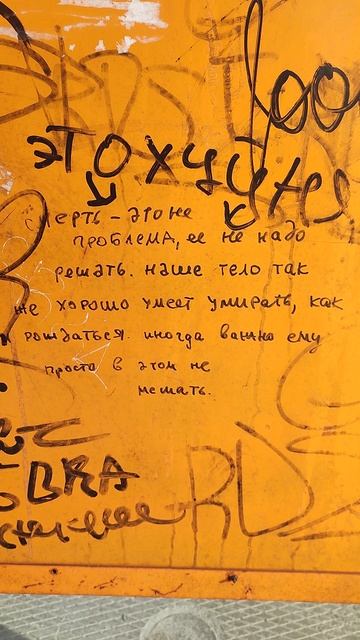 это хуйня
смерть - это не
проблема, ее не надо
решать. наше тело так
же хорошо умеет умирать, как
рождаться. иногда важно ему
просто в этом не
мешать.
ВКА
RD